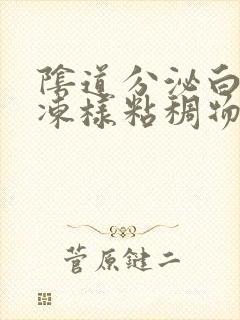 陰道分泌白
凍樣粘稠物
菅原鍵二